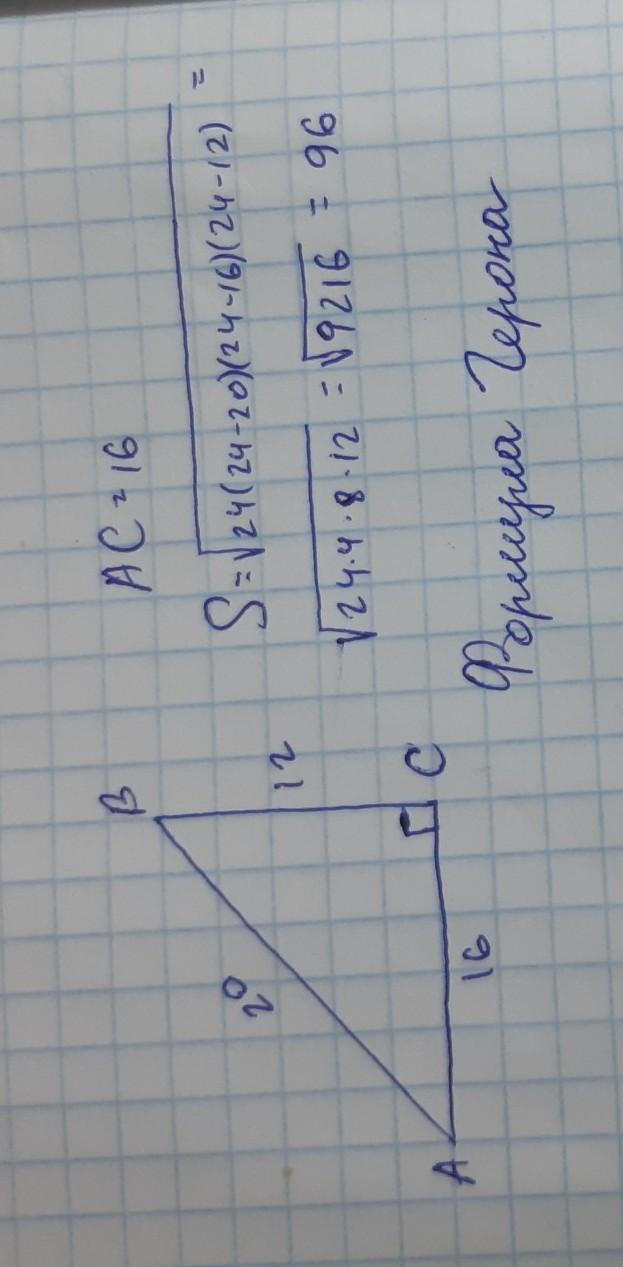 B
20
12
A
16
C
AC = 16
S = √24(24-20)(24-16)(24-12) =
√24·4·8·12 = √9216 = 96
Формула Герона